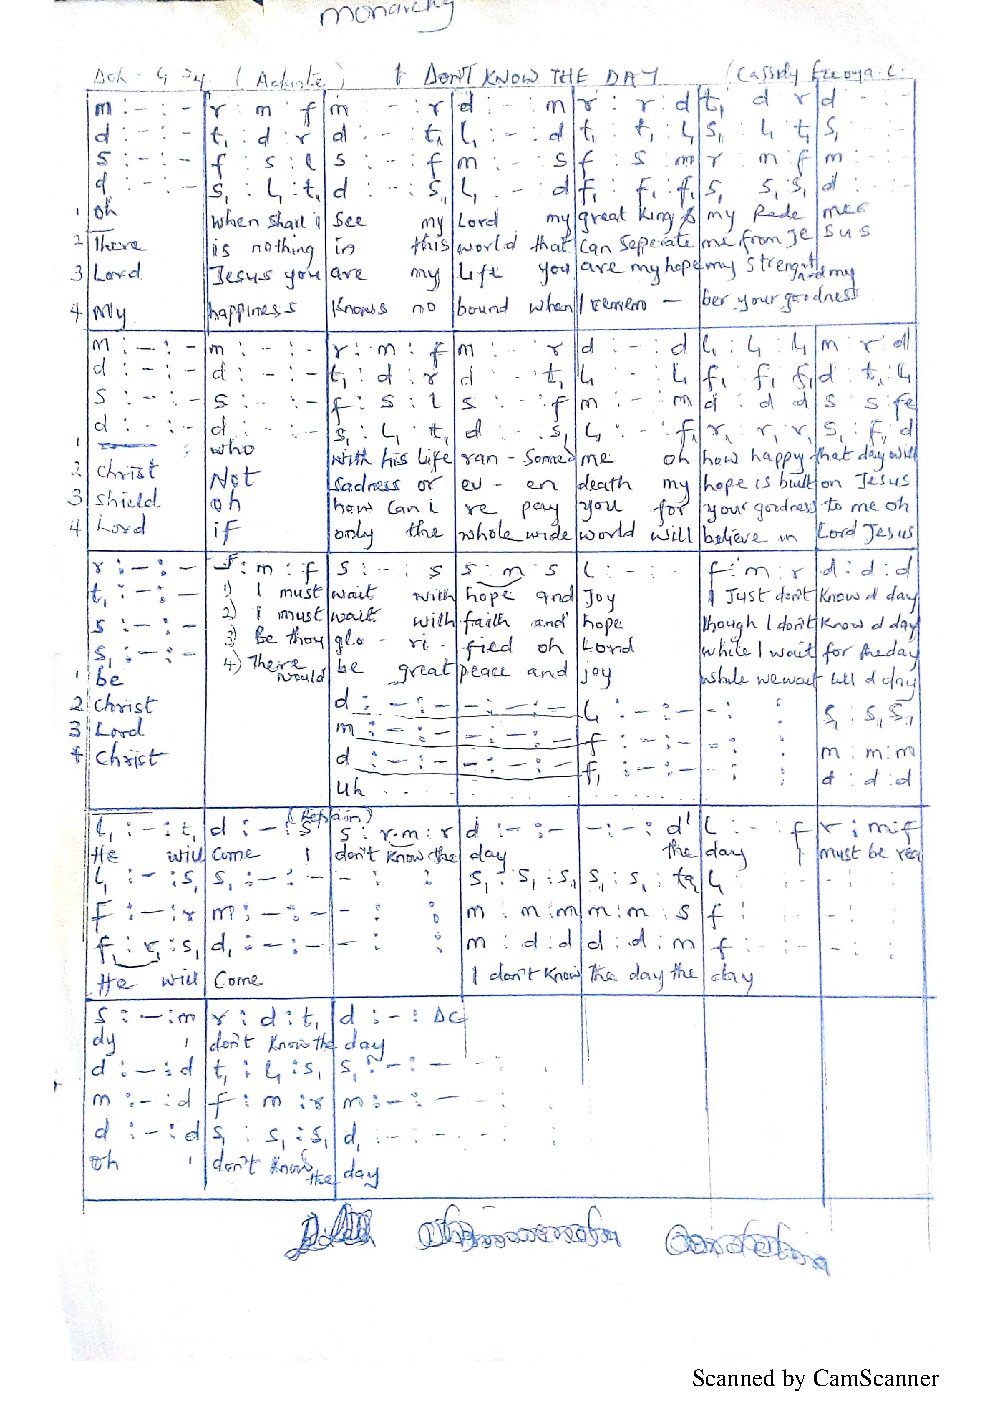 monarchy
Doh - G 3/4 (Andante) I DON'T KNOW THE DAY (Cassidy Ezeoya. C.
m : - : - r m f m - : r d : - m r : r d t₁ d r d - : -
d : - : - t₁ : d r d : - t₁ l₁ : - : d t₁ : t₁ : l₁ s₁ l₁ t₁ s₁
s : - : - f s : l s : - : f m - s f : s m r m f m : - : -
d : - : - s₁ : l₁ : t₁ d : - : s₁ l₁ - d f₁ : f₁ : f₁ s₁ s₁ : s₁ d : - : -
1 Oh when shall I see my Lord my great King & my Rede mer
2 There is nothing in this world that can seperate me from Je sus
3 Lord Jesus you are my life you are my hope my strenght and my
4 My happiness knows no bound when I remem - ber your goodness
m : - : - m : - : - r : m : f m : - r d : - : d l₁ : l₁ l₁ m r d
d : - : - d : - : - t₁ : d : r d : - t₁ l₁ - l₁ f₁ : f₁ f₁ d t₁ l₁
s : - : - s : - : - f : s : l s : - f m : - m d : d d s s fe
d : - : - d : - : - s₁ : l₁ t₁ d : s₁ l₁ : - f₁ r₁ : r₁ r₁ s₁ : f₁ d
1 who with his life ran - somed me oh how happy that day will
2 Christ Not sadness or ev - en death my hope is built on Jesus
3 Shield oh how can I re pay you for your goodness to me oh
4 Lord if only the whole wide world will believe in Lord Jesus
r : - : - f : m : f s : - : s s : m s l : - : - f : m : r d : d : d
t₁ : - : - 1) I must wait with hope and joy I Just don't know d day
s : - : - 2) i must wait with faith and hope though I don't know d day
s₁ : - : - 3) Be thou glo - ri - fied oh Lord while I wait for the day
1 be 4) There would be great peace and joy while we wait till d day
2 Christ d : - : - - : - : - l₁ : - : - - : : s₁ : s₁ s₁
3 Lord m : - : - - : - : - f : - : - - : : m : m : m
4 Christ d : - : - - : - : - f₁ : - : - - : : d : d : d
Uh
(Refrain)
l₁ : - : t₁ d : - : s s : r.m : r d : - : - - : - : d' l : - f r : m : f
He will Come I don't know the day the day I must be rea
l₁ : - : s₁ s₁ : - : - - : : s₁ : s₁ : s₁ s₁ : s₁ : ta₁ l₁ : - : - - : - : -
f : - : r m : - : - - : : m : m : m m : m : s f : - : - - : - : -
f₁ : r₁ : s₁ d₁ : - : - - : : m : d : d d : d : m f : - : - - : - : -
He will Come I don't know the day the day
s : - : m r : d : t₁ d : - : DC
dy I don't know the day
d : - : d t₁ : l₁ : s₁ s₁ : - : -
m : - : d f : m : r m : - : -
d : - : d s₁ : s₁ : s₁ d₁ : - : -
Oh I don't know the day
Scanned by CamScanner